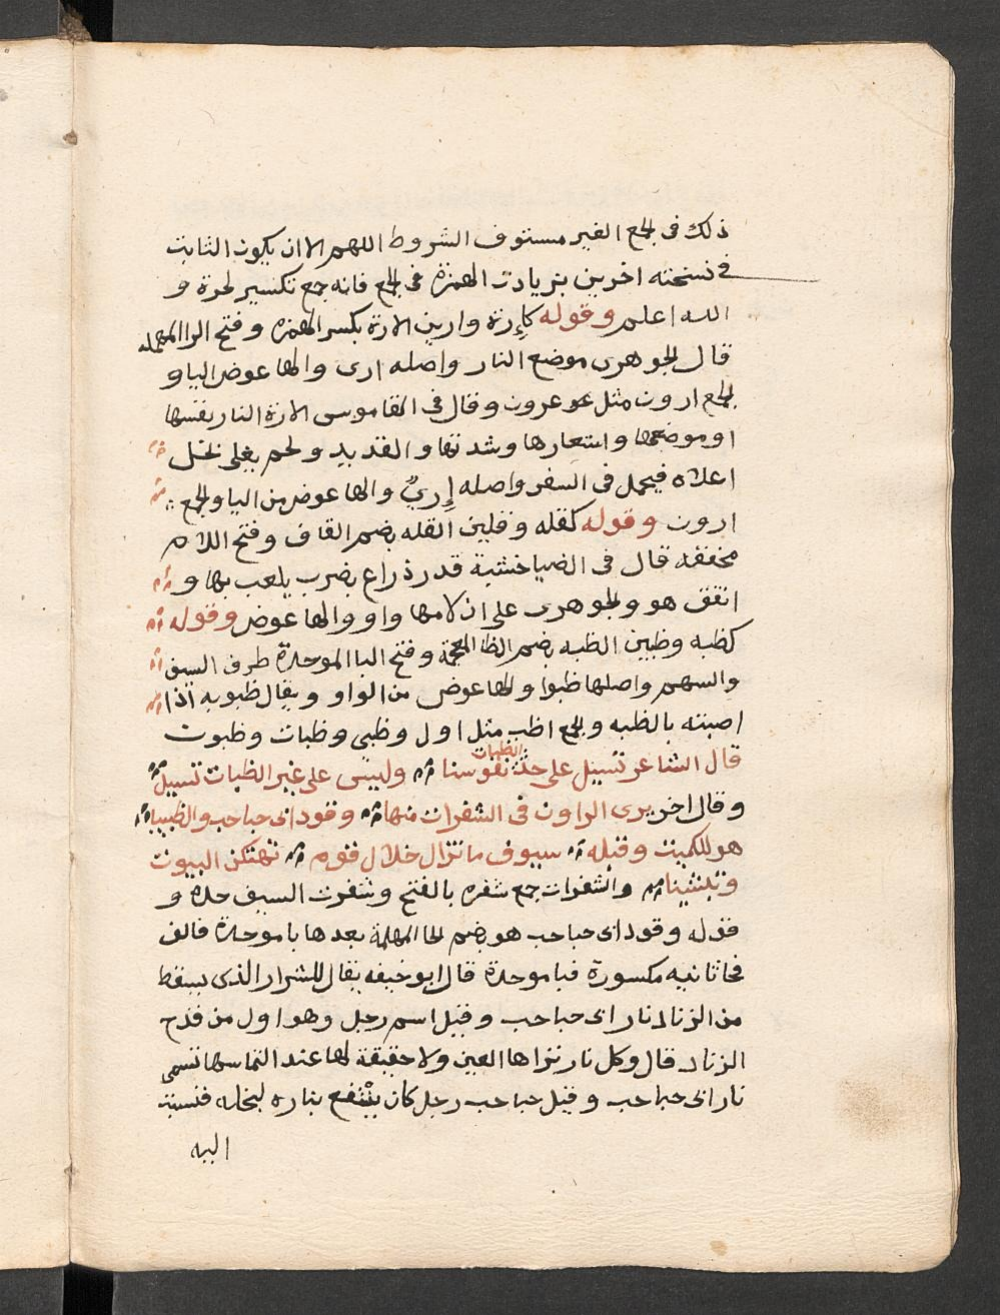 ذلك فى الجمع الغير مستوف الشروط اللهم الا ان يكون الثابت
فى نسخته اخرين بزيادت الهمزة فى الجمع فانه جمع تكسير لحرة و
الله اعلم وقوله كإرة وارين الارة بكسر الهمزه وفتح الرا المهمله
قال الجوهرى موضع النار واصله ارى والها عوض اليا و
الجمع ارون مثل عوعرون وقال فى القاموس الارة النار نفسها
او موضعها واستعارها وشدتها والقديد ولحم يغلى نخل
اعلاه فيحمل فى السفر واصله إريٌ والها عوض من اليا والجمع
ارون وقوله كقله وقلين القله بضم القاف وفتح اللام
مخففه قال فى الضيا خشبة قدر ذراع يضرب يلعب بها و
اتفق هو والجوهرى على ان لامها واو والها عوض وقوله
كظبه وظبين الظبه بضم الظا المعجمة وفتح البا الموحدة طرف السيف
والسهم واصلها ظبوا والها عوض من الواو ويقال ظبوبه اذا
اصبته بالظبه والجمع اظب مثل اول وظبى وظبات وظبوت
قال الشاعر تسيل على حد الظبات نفوسنا وليس على غير الظبات تسيل
وقال اخر يرى الراون فى الشفرات منها وقود ابى حباحب والظبيبا
هو للكميت وقبله سيوف ما تزال خلال قوم تهتكن البيوت
والشفرات جمع شفره بالفتح وشفرت السيف حده و
قوله وقود ابى حباحب هو بضم الحا المهلمة بعدها با موحدة فالف
فحا ثانيه مكسورة فبا موحدة قال ابو حيفه يقال للشرار الذى يسقط
من الزناد نار ابى حباحب وقيل اسم رجل وهو اول من قدح
الزناد قال وكل نار تراها العين ولا حقيقة لها عند التماسها تسمى
نار ابى حباحب وقيل حباحب رجل كان ينتفع بناره لبخله فنسبت
اليه